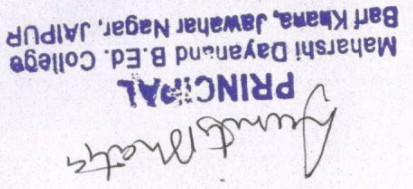 PRINCIPAL
Maharshi Dayanand B.Ed. College
Barf Khana, Jawahar Nagar, JAIPUR